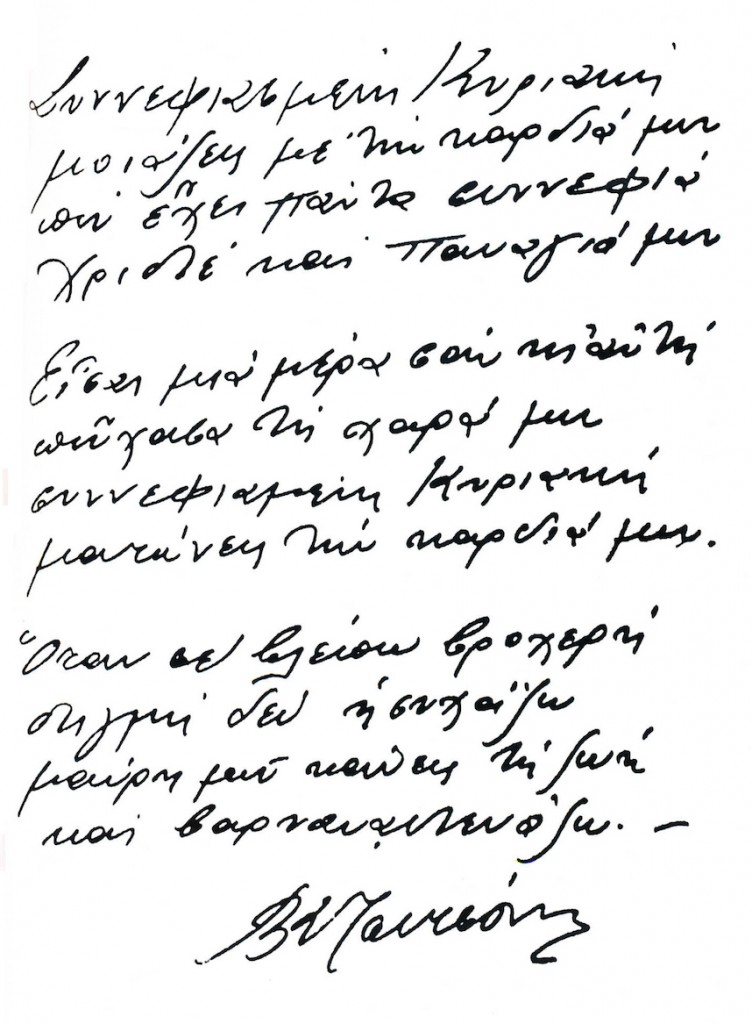 Συννεφιασμένη Κυριακή
μοιάζεις μὲ τὴν καρδιά μου
ποὺ ἔχει πάντα συννεφιά
Χριστέ καὶ Παναγιά μου
Εἶσαι μιά μέρα σάν κι αὐτή
ποὖχασα τὴ χαρά μου
συννεφιαμένη Κυριακή
ματώνεις τήν καρδιά μου.
Ὅταν σέ βλέπω βροχερή
στιγμή δέν ἡσυχάζω
μαύρη μοῦ κάνεις τή ζωή
καὶ βαρυαναστενάζω. —
Β Τσιτσάνης